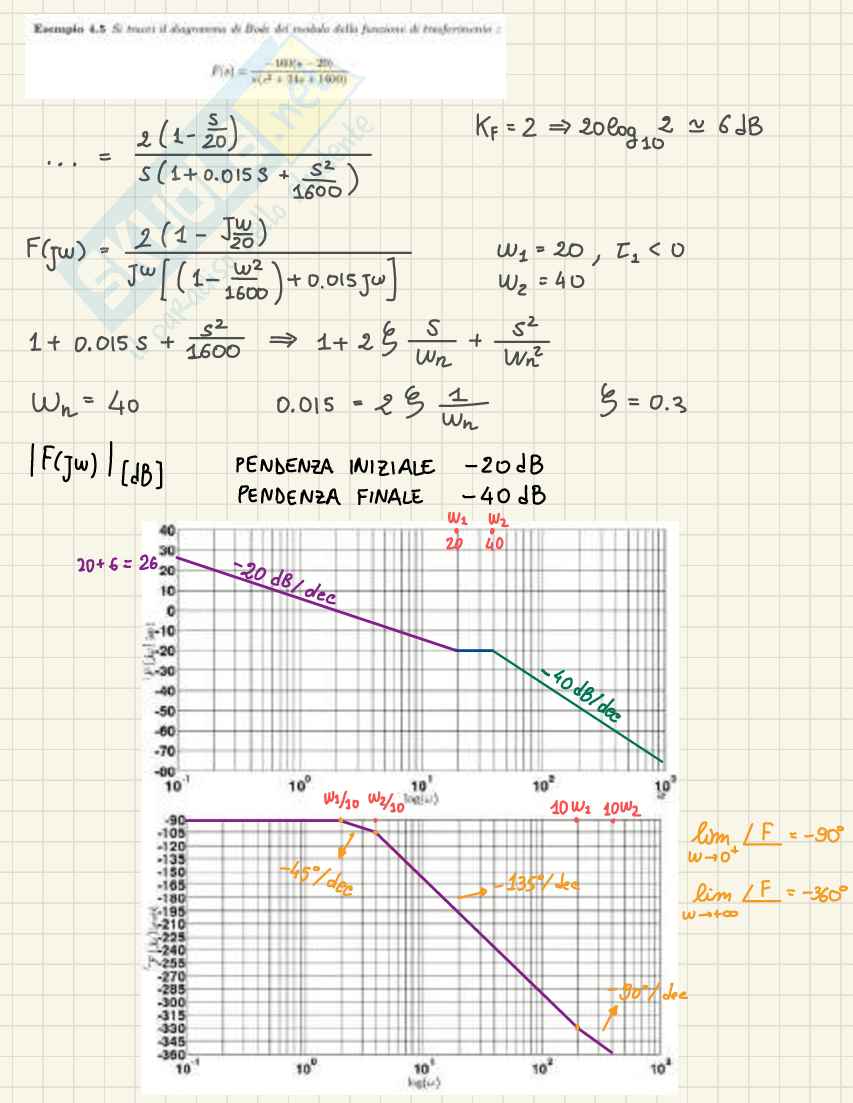 Esempio 4.5 Si tracci il diagramma di Bode del modulo della funzione di trasferimento :
F(s) = −160(s − 20) / s(s² + 24s + 1600)
... = 2(1 - s/20) / s(1 + 0.015 s + s²/1600)
K_F = 2 ⇒ 20 log₁₀ 2 ≃ 6 dB
F(jw) = 2(1 - jw/20) / jw[(1 - w²/1600) + 0.015 jw]
w₁ = 20 , τ₁ < 0
w₂ = 40
1 + 0.015 s + s²/1600 ⇒ 1 + 2 ξ s/wn + s²/wn²
wn = 40 0.015 = 2 ξ 1/wn ξ = 0.3
|F(jw)| [dB]
PENDENZA INIZIALE -20 dB
PENDENZA FINALE -40 dB
w₁ w₂
20 40
20+6 = 26
-20 dB/dec
-40 dB/dec
40
30
20
10
0
-10
-20
-30
-40
-50
-60
-70
10⁻¹ 10⁰ 10¹ 10² 10³
log(ω)
w₁/10 w₂/10 10w₁ 10w₂
-90
-105
-120
-135
-150
-165
-180
-195
-210
-225
-240
-255
-270
-285
-300
-315
-330
-345
-360
-45°/dec
-135°/dec
-90°/dec
10⁻¹ 10⁰ 10¹ 10² 10³
log(ω)
lim w→0⁺ ∠F = -90°
lim w→+∞ ∠F = -360°